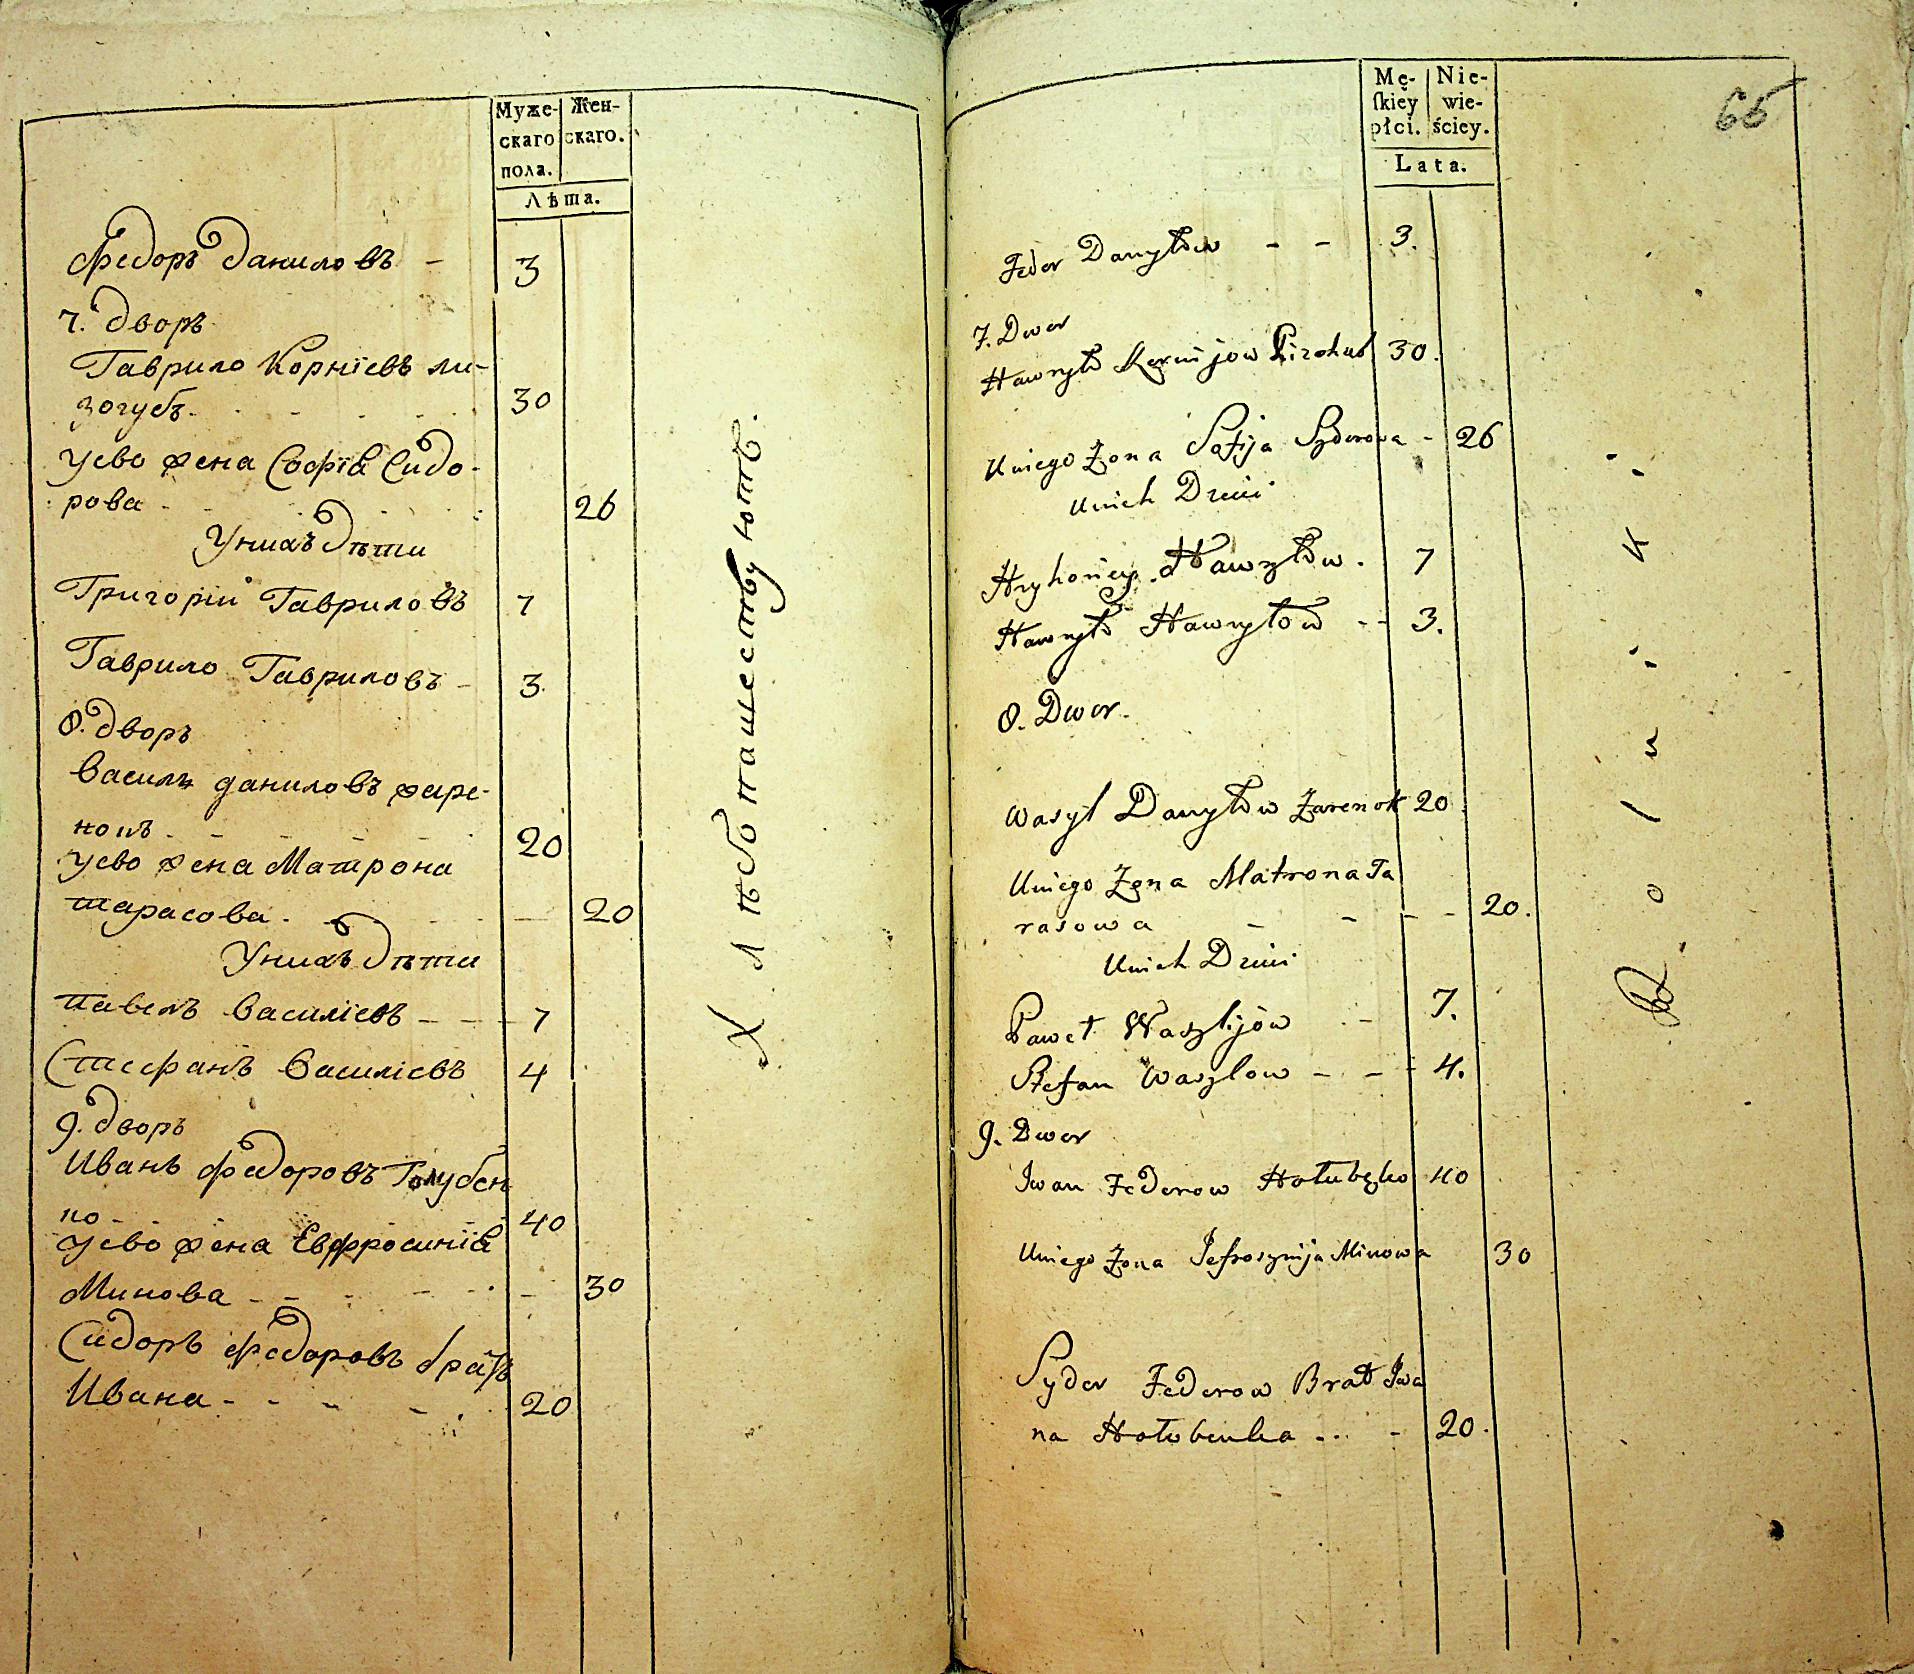 Муже- Жен-
скаго скаго.
пола.
Лѣта.
Федоръ Даниловъ - 3
7. Дворъ
Гаврило Корнїевъ ли-
зогубъ. 30
Уево жена Софїя Сидо-
рова - 26
Унихъ Дѣти
Григорїй Гавриловъ 7
Гаврило Гавриловъ - 3
8. Дворъ
Василь даниловъ жаре-
нокъ - 20
Уево жена Матрона
тарасова. - 20
Унихъ Дѣти
павелъ Василїевъ - - - 7
Стефанъ Василїевъ 4
9. Дворъ
Иванъ Федоровъ Голубен
ко - 40
Уево жена Евфросинїя
Минова - - - 30
Сидоръ Федоровъ братъ
Ивана - - - 20
Хлѣбопашествуютъ.
66
Mę- Nie-
skiey wie-
płci. ściey.
Lata.
Fedor Danyłow - - 3.
7. Dwor
Hawryło Kornijow Lizohub 30.
Uniego Zona Sofija Syderowa - 26
Unich Dzieci
Hryhoriey Hawryłow. 7
Hawryło Hawryłow - - 3.
8. Dwor.
Wasyl Danyłow Zarenok 20
Uniego Zona Matrona Ta
rasowa - - - - 20.
Unich Dzieci
Paweł Wasylijow - 7.
Stefan Wasylow - - - 4.
9. Dwor
Iwan Federow Hołubenko 40
Uniego Zona Jefrosynija Minowa 30
Syder Federow Brat Iwa
na Hołobenka - - - 20.
Rolniki.